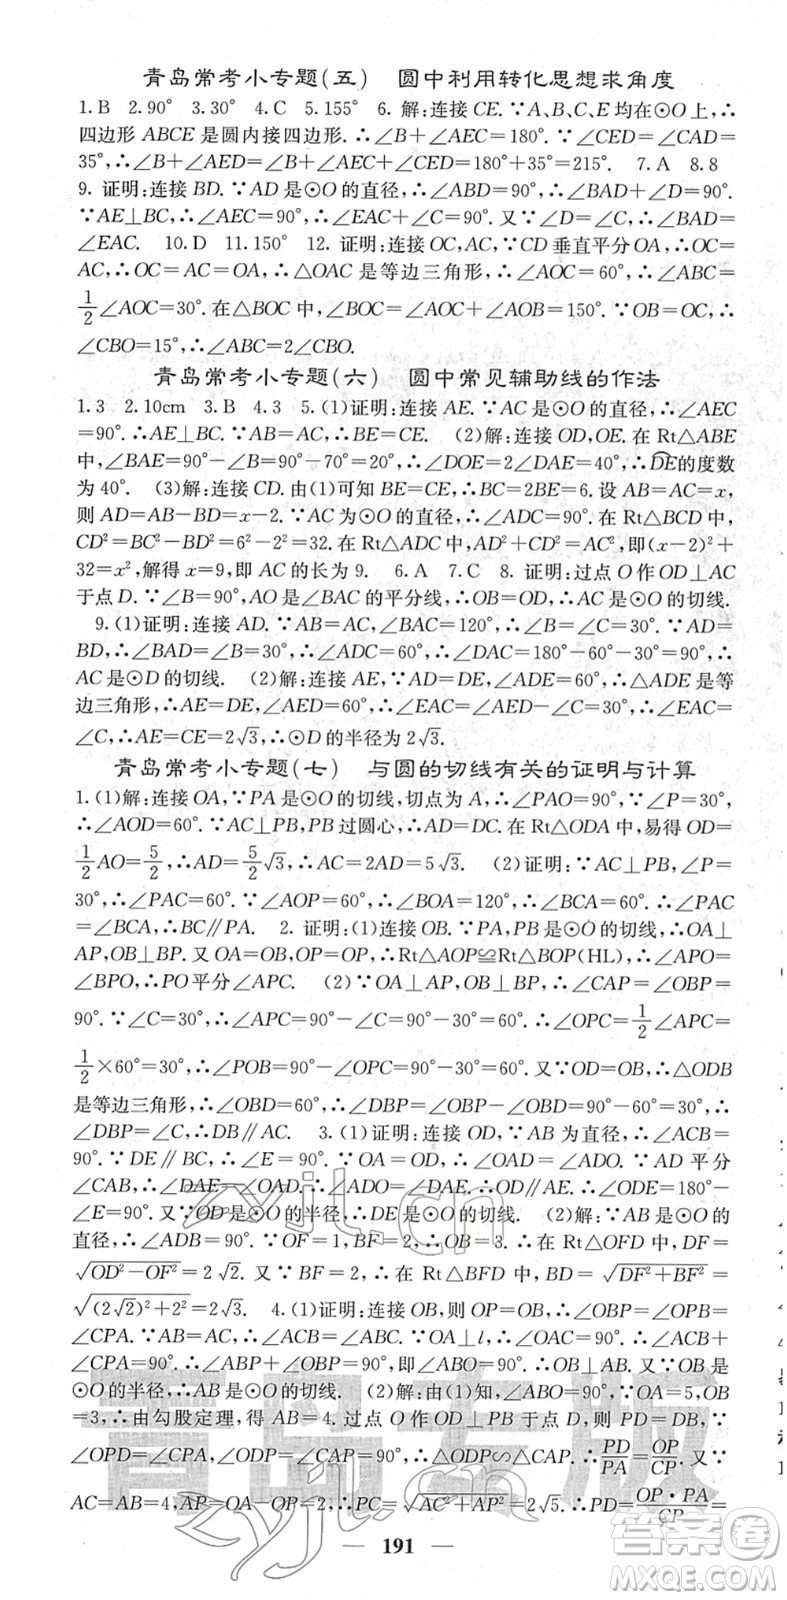 青岛常考小专题(五) 圆中利用转化思想求角度
1.B 2.90° 3.30° 4.C 5.155° 6. 解:连接 CE.∵A、B、C、E 均在⊙O 上,∴
四边形 ABCE 是圆内接四边形.∴∠B+∠AEC=180°.∵∠CED=∠CAD=
35°,∴∠B+∠AED=∠B+∠AEC+∠CED=180°+35°=215°. 7.A 8.8
9. 证明:连接 BD.∵AD 是⊙O 的直径,∴∠ABD=90°,∴∠BAD+∠D=90°.
∵AE⊥BC,∴∠AEC=90°,∴∠EAC+∠C=90°. 又∵∠D=∠C,∴∠BAD=
∠EAC. 10.D 11.150° 12. 证明:连接 OC,AC,∵CD 垂直平分 OA,∴OC=
AC,∴OC=AC=OA,∴△OAC 是等边三角形,∴∠AOC=60°,∴∠ABC=
1/2∠AOC=30°. 在△BOC 中,∠BOC=∠AOC+∠AOB=150°.∵OB=OC,∴
∠CBO=15°,∴∠ABC=2∠CBO.
青岛常考小专题(六) 圆中常见辅助线的作法
1.3 2.10cm 3.B 4.3 5.(1)证明:连接 AE.∵AC 是⊙O 的直径,∴∠AEC
=90°,∴AE⊥BC.∵AB=AC,∴BE=CE. (2)解:连接 OD,OE. 在 Rt△ABE
中,∠BAE=90°-∠B=90°-70°=20°,∴∠DOE=2∠DAE=40°,∴DE的度数
为 40°. (3)解:连接 CD. 由(1)可知 BE=CE,∴BC=2BE=6. 设 AB=AC=x,
则 AD=AB-BD=x-2.∵AC 为⊙O 的直径,∴∠ADC=90°. 在 Rt△BCD 中,
CD²=BC²-BD²=6²-2²=32. 在 Rt△ADC 中,AD²+CD²=AC²,即(x-2)²+
32=x²,解得 x=9,即 AC 的长为 9. 6.A 7.C 8. 证明:过点 O 作 OD⊥AC
于点 D.∵∠B=90°,AO 是∠BAC 的平分线,∴OB=OD,∴AC 是⊙O 的切线.
9.(1)证明:连接 AD.∵AB=AC,∠BAC=120°,∴∠B=∠C=30°.∵AD=
BD,∴∠BAD=∠B=30°,∴∠ADC=60°,∴∠DAC=180°-60°-30°=90°,∴
AC 是⊙D 的切线. (2)解:连接 AE,∵AD=DE,∠ADE=60°,∴△ADE 是等
边三角形,∴AE=DE,∠AED=60°,∴∠EAC=∠AED-∠C=30°,∴∠EAC=
∠C,∴AE=CE=2√3,∴⊙D 的半径为 2√3.
青岛常考小专题(七) 与圆的切线有关的证明与计算
1.(1)解:连接 OA,∵PA 是⊙O 的切线,切点为 A,∴∠PAO=90°,∵∠P=30°,
∴∠AOD=60°.∵AC⊥PB,PB 过圆心,∴AD=DC. 在 Rt△ODA 中,易得 OD=
1/2AO=5/2,∴AD=5/2√3,∴AC=2AD=5√3. (2)证明:∵AC⊥PB,∠P=
30°,∴∠PAC=60°.∵∠AOP=60°,∴∠BOA=120°,∴∠BCA=60°,∴∠PAC
=∠BCA,∴BC∥PA. 2. 证明:(1)连接 OB.∵PA,PB 是⊙O 的切线,∴OA⊥
AP,OB⊥BP. 又 OA=OB,OP=OP,∴Rt△AOP≌Rt△BOP(HL),∴∠APO=
∠BPO,∴PO 平分∠APC. (2)∵OA⊥AP,OB⊥BP,∴∠CAP=∠OBP=
90°.∵∠C=30°,∴∠APC=90°-∠C=90°-30°=60°.∴∠OPC=1/2∠APC=
1/2×60°=30°,∴∠POB=90°-∠OPC=90°-30°=60°. 又∵OD=OB,∴△ODB
是等边三角形,∴∠OBD=60°,∴∠DBP=∠OBP-∠OBD=90°-60°=30°,∴
∠DBP=∠C,∴DB∥AC. 3.(1)证明:连接 OD,∵AB 为直径,∴∠ACB=
90°.∵DE∥BC,∴∠E=90°.∵OA=OD,∴∠OAD=∠ADO.∵AD 平分
∠CAB,∴∠DAE=∠OAD,∴∠ADO=∠DAE.∴OD∥AE.∴∠ODE=180°-
∠E=90°. 又∵OD 是⊙O 的半径,∴DE 是⊙O 的切线. (2)解:∵AB 是⊙O 的
直径,∴∠ADB=90°.∵OF=1,BF=2,∴OB=3,∴OD=3. 在 Rt△OFD 中,DF=
√(OD²-OF²)=2√2. 又∵BF=2,∴在 Rt△BFD 中,BD=√(DF²+BF²)=
√((2√2)²+2²)=2√3. 4.(1)证明:连接 OB,则 OP=OB,∴∠OBP=∠OPB=
∠CPA.∵AB=AC,∴∠ACB=∠ABC.∵OA⊥l,∴∠OAC=90°,∴∠ACB+
∠CPA=90°,∴∠ABP+∠OBP=90°,即∠ABO=90°,∴OB⊥AB. 又∵OB 是
⊙O 的半径,∴AB 是⊙O 的切线. (2)解:由(1)知,∠ABO=90°,∵OA=5,OB
=3,∴由勾股定理,得 AB=4. 过点 O 作 OD⊥PB 于点 D,则 PD=DB,∵
∠OPD=∠CPA,∠ODP=∠CAP=90°,∴△ODP∽△CAP.∴PD/PA=OP/CP. 又∵
AC=AB=4,AP=OA-OP=2,∴PC=√(AC²+AP²)=2√5.∴PD=OP·PA/CP=
191
青岛专版
zyjl.cn
答案圈